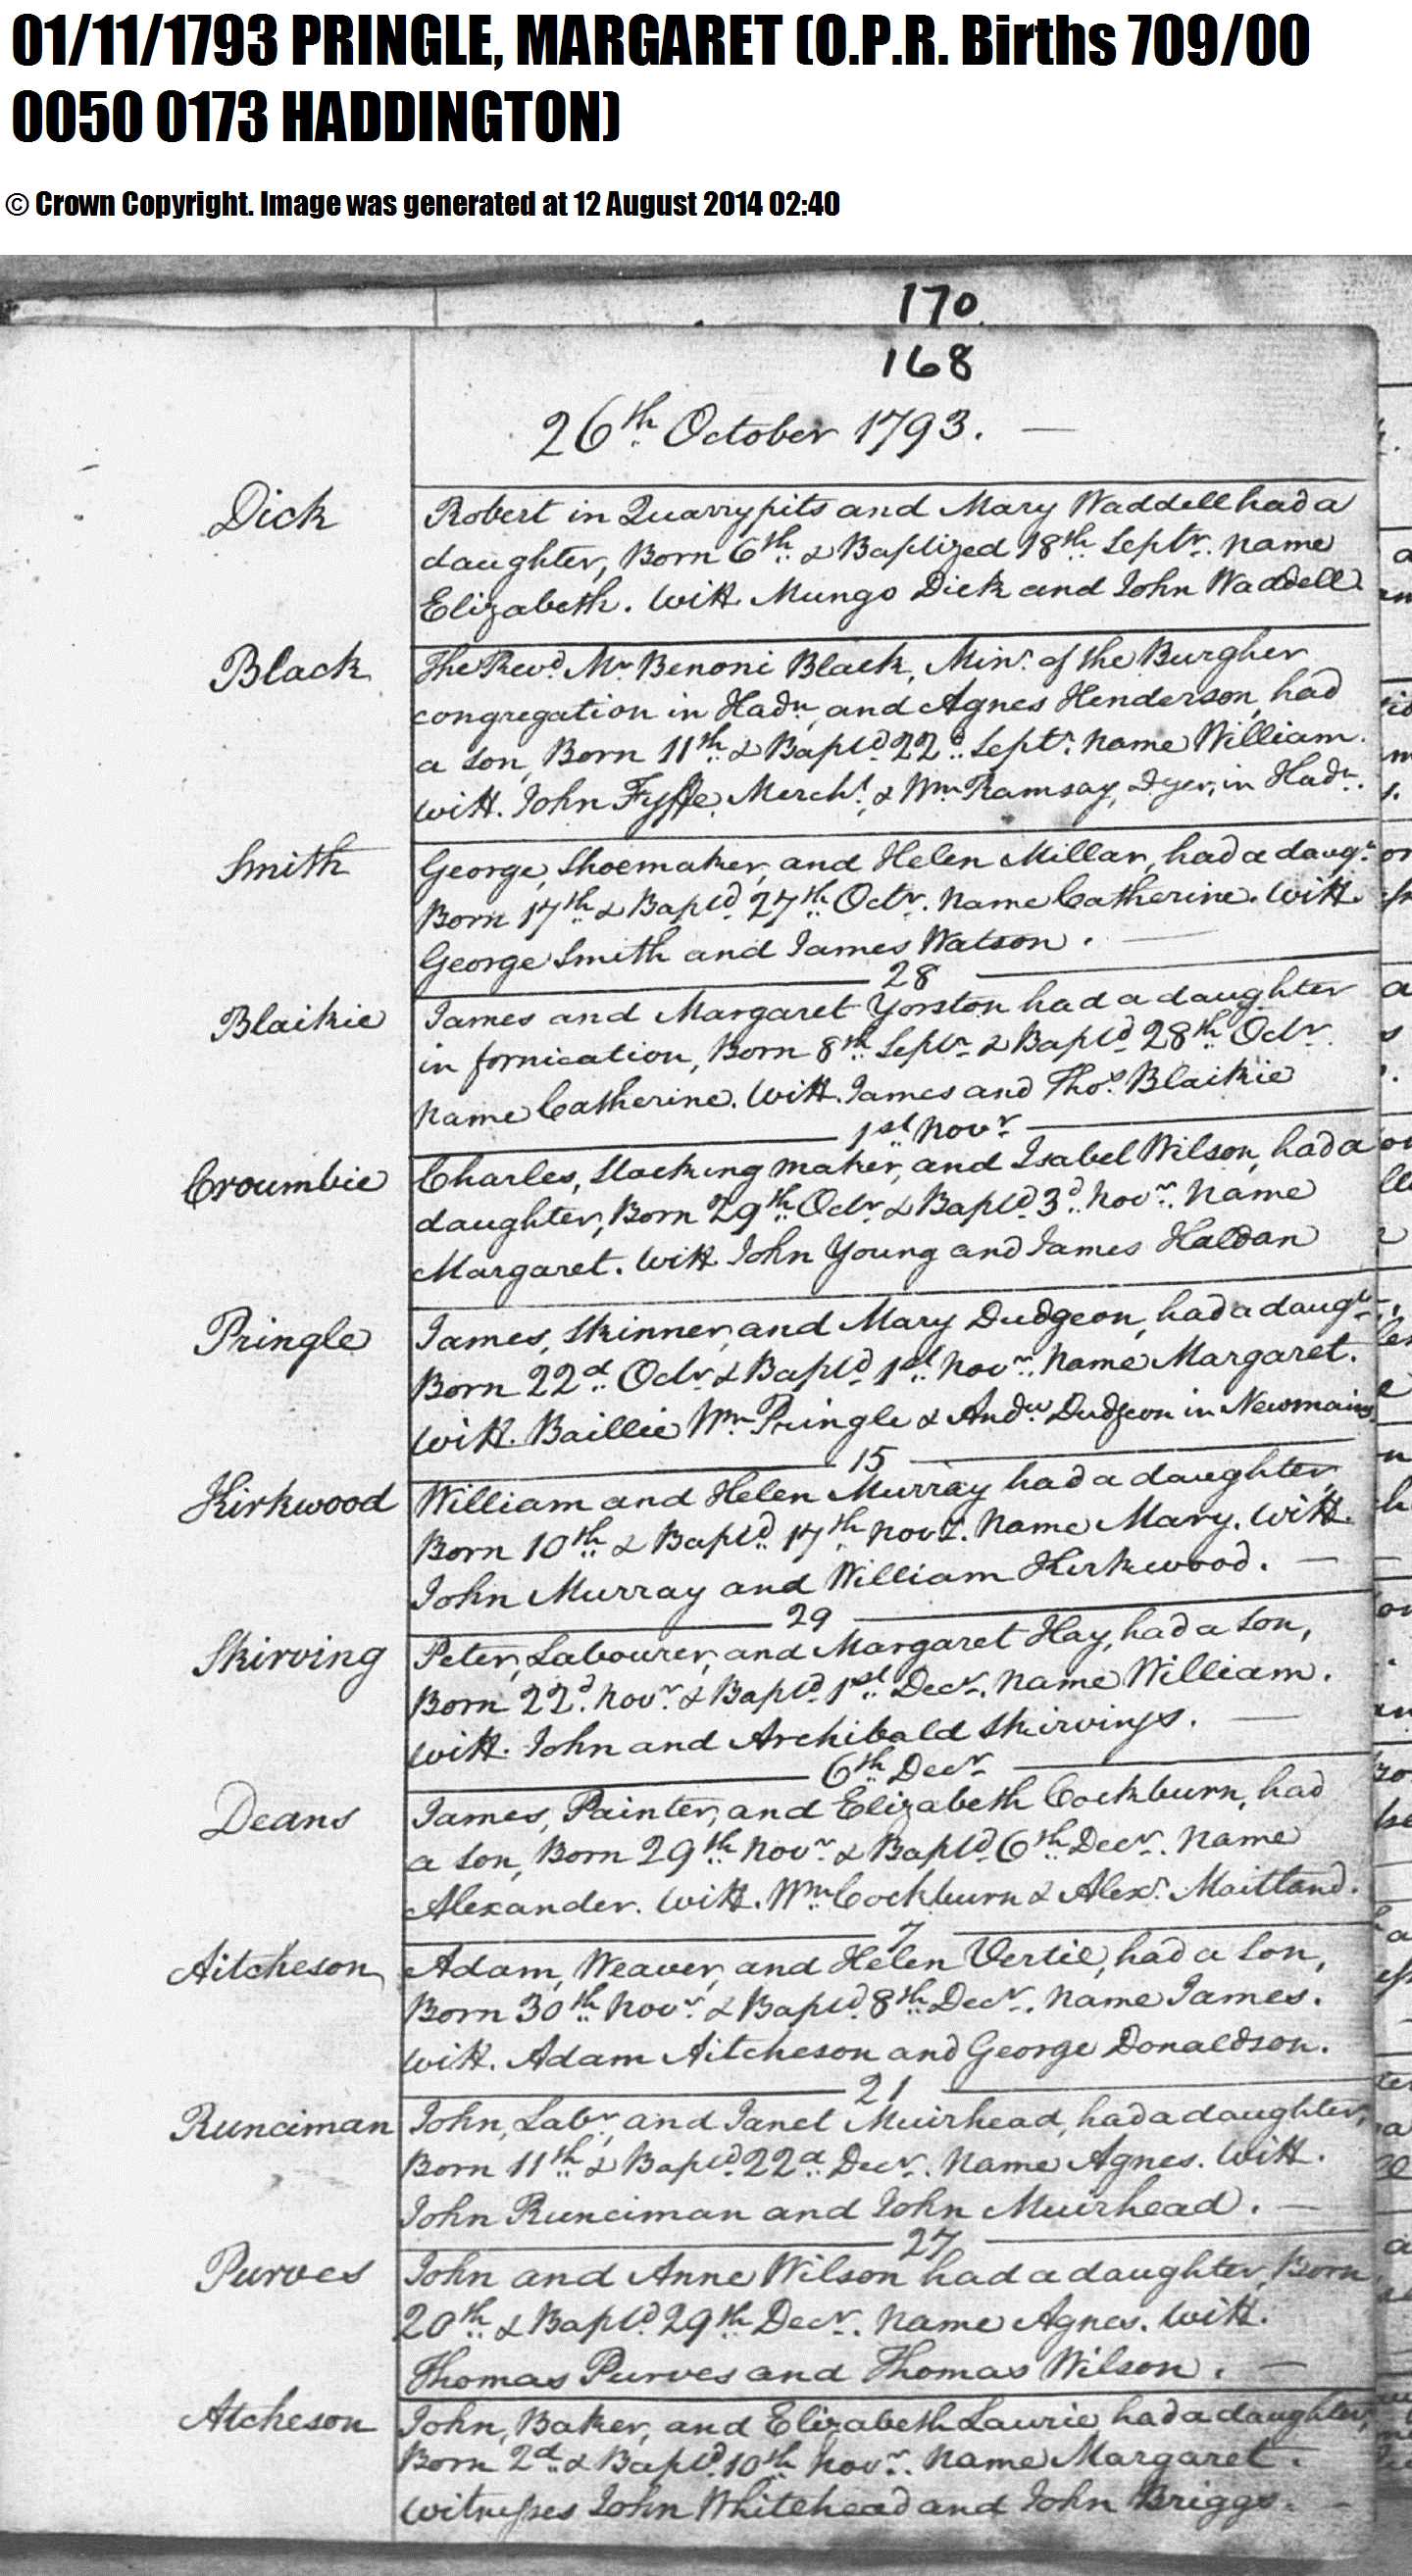 01/11/1793 PRINGLE, MARGARET (O.P.R. Births 709/00
0050 0173 HADDINGTON)
© Crown Copyright. Image was generated at 12 August 2014 02:40
170
168
26th October 1793. —
Dick
Robert in Quarrypits and Mary Waddell had a
daughter, Born 6th & Baptized 18th Septr. Name
Elizabeth. Witt. Mungo Dick and John Waddell
Black
The Revd. Mr Benoni Black, Minr. of the Burgher
congregation in Hadn, and Agnes Henderson, had
a Son, Born 11th & Baptd 22d Septr. Name William.
Witt. John Fyffe, Mercht, & Wm Ramsay, Dyer, in Hadn.
Smith
George, Shoemaker, and Helen Millar, had a daugr.
Born 17th & Baptd 27th Octr. Name Catherine. Witt.
George Smith and James Watson. —
28
Blaikie
James and Margaret Yorston had a daughter
in fornication, Born 8th Septr & Baptd 28th Octr
Name Catherine. Witt. James and Thos. Blaikie
1st Novr
Croumbie
Charles, Stocking maker, and Isabel Wilson, had a
daughter, Born 29th Octr & Baptd 3d Novr. Name
Margaret. Witt John Young and James Haldan
Pringle
James, Skinner, and Mary Dudgeon, had a daugr.
Born 22d Octr & Baptd 1st Novr. Name Margaret.
Witt. Baillie Wm Pringle & Andw Dudgeon in Newmains
15
Kirkwood
William and Helen Murray had a daughter,
Born 10th & Baptd 17th Novr. Name Mary. Witt.
John Murray and William Kirkwood. —
29
Skirving
Peter, Labourer, and Margaret Hay, had a Son,
Born 22d Novr & Baptd 1st Decr. Name William.
Witt. John and Archibald Skirvings. —
6th Decr
Deans
James, Painter, and Elizabeth Cockburn, had
a Son, Born 29th Novr & Baptd 6th Decr. Name
Alexander. Witt. Wm Cockburn & Alexr. Maitland.
7
Aitcheson
Adam, Weaver, and Helen Vertie, had a Son,
Born 30th Novr & Baptd 8th Decr. Name James.
Witt. Adam Aitcheson and George Donaldson.
21
Runciman
John, Labr, and Janet Muirhead, had a daughter,
Born 11th & Baptd 22d Decr. Name Agnes. Witt.
John Runciman and John Muirhead. —
27
Purves
John and Anne Wilson had a daughter, Born
20th & Baptd 29th Decr. Name Agnes. Witt.
Thomas Purves and Thomas Wilson. —
Atcheson
John, Baker, and Elizabeth Laurie had a daughter,
Born 2d & Baptd 10th Novr. Name Margaret.
Witnesses John Whitehead and John Briggs. —